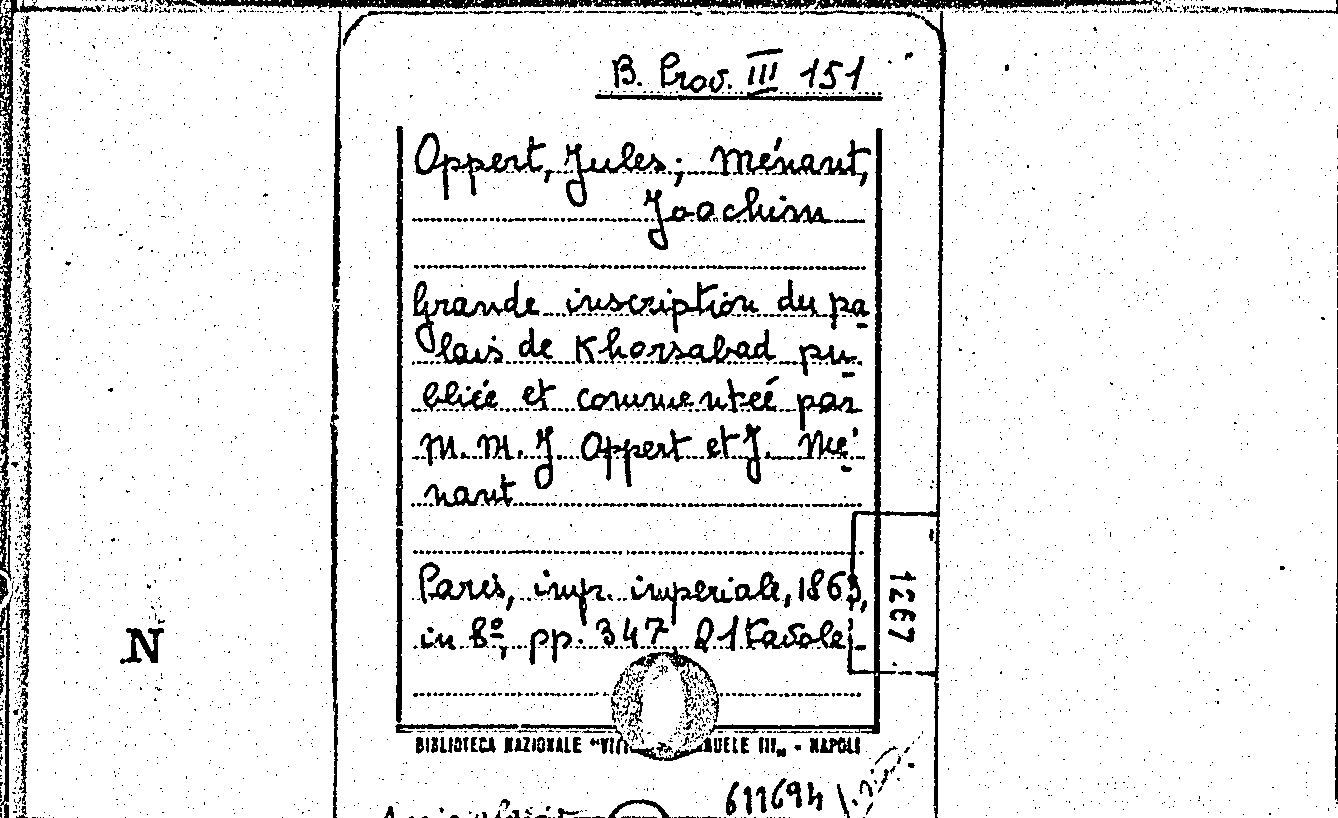 B. Prov. III 151
Oppert, Jules; Ménant,
Joachim
Grande inscription du pa-
lais de Khorsabad pu-
bliée et commenteé par
M. M. J. Oppert et J. Mé-
nant
Paris, imp. imperiale, 1863,
in 8º, pp. 347, 21 tavole.
1267
N
BIBLIOTECA NAZIONALE "VITT UELE III" - NAPOLI
611694